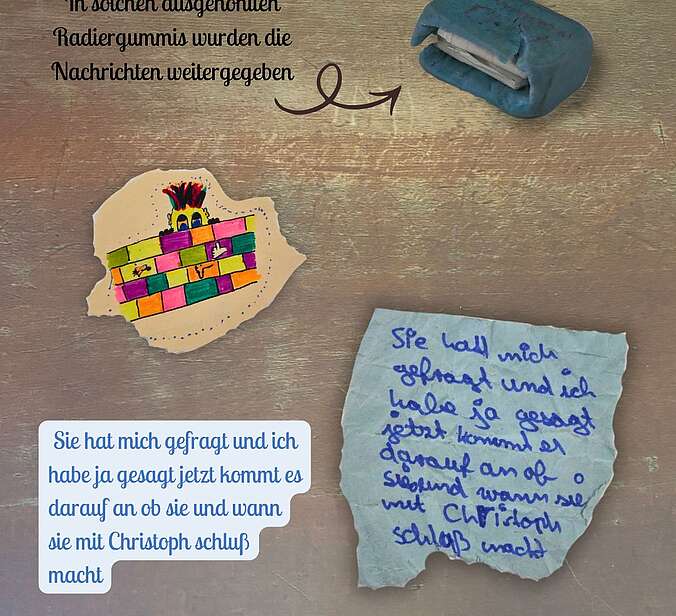 In solchen ausgehöhlten
Radiergummis wurden die
Nachrichten weitergegeben
Sie hat mich gefragt und ich
habe ja gesagt jetzt kommt es
darauf an ob sie und wann
sie mit Christoph schluß
macht
Sie hatt mich
gefragt und ich
habe ja gesagt
jetzt kommt es
darauf an ob
sie und wann sie
mit Christoph
schluß macht